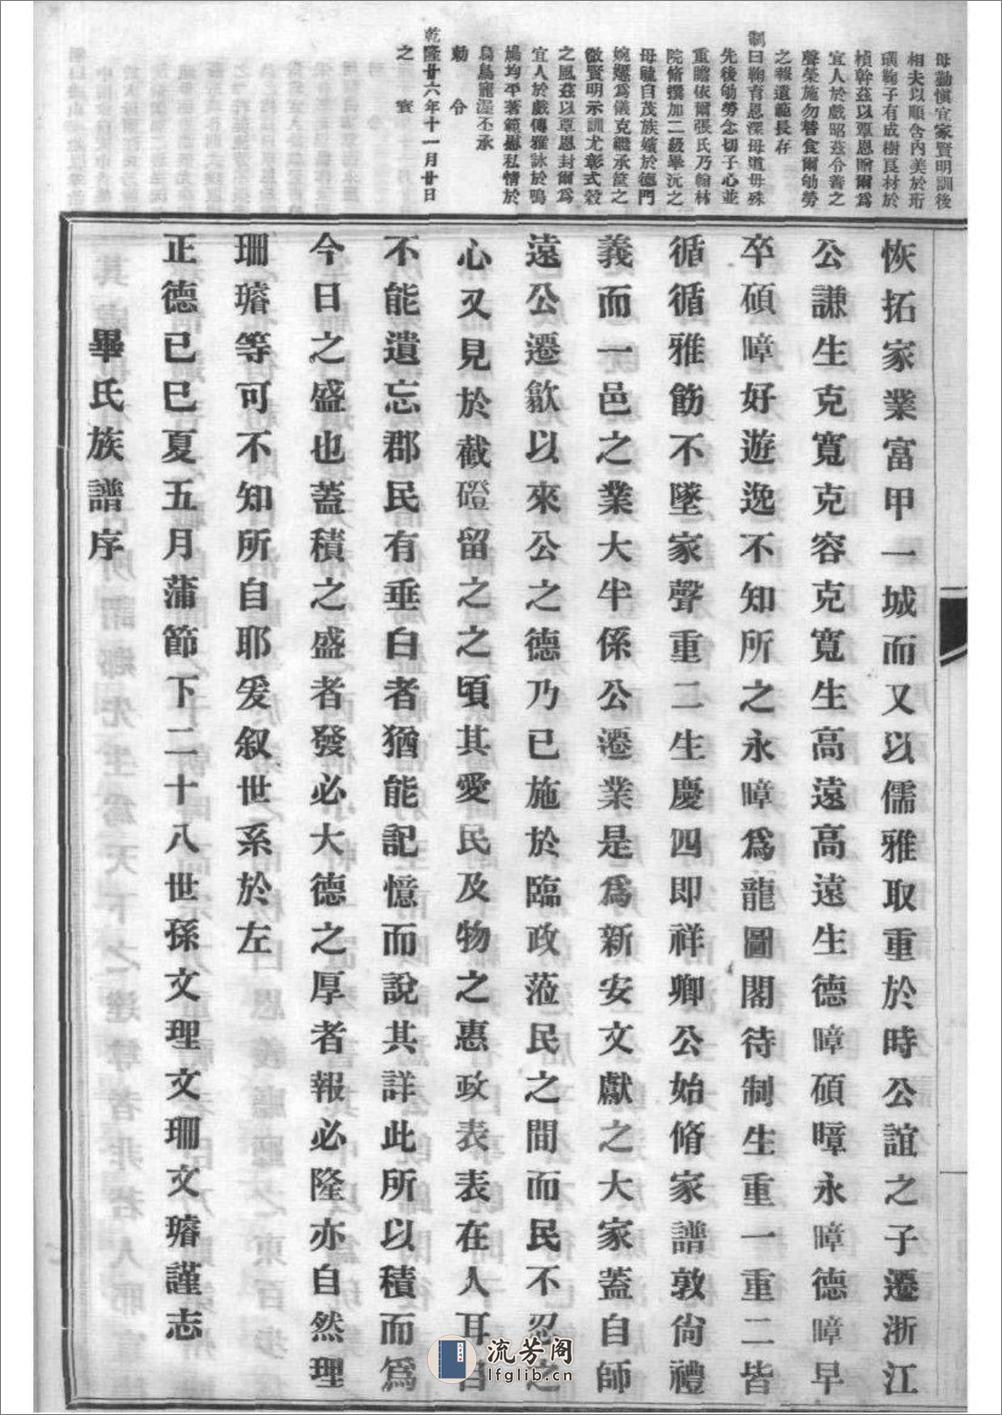 母勤愼宜家賢明訓後
相夫以順含內美於珩
璜鞠子有成樹良材於
楨幹茲以覃恩贈爾爲
宜人於戲昭茲令善之
聲榮施勿替食爾劬勞
之報遺範長存
制曰鞠育恩深母道毋殊
先後劬勞念切子心並
重瞻依爾張氏乃翰林
院脩撰加二級畢沅之
母毓自茂族嬪於德門
婉㜻爲儀克繼承筐之
敬賢明示訓尤彰式穀
之風茲以覃恩封爾爲
宜人於戲傳雅詠於鳴
鳩均平著範慰私情於
烏鳥寵渥丕承
勅令
乾隆廿六年十一月廿日
之寶
恢拓家業富甲一城而又以儒雅取重於時公誼之子遷浙江
公謙生克寬克容克寬生高遠高遠生德暲碩暲永暲德暲早
卒碩暲好遊逸不知所之永暲爲龍圖閣待制生重一重二皆
循循雅飭不墜家聲重二生慶四即祥卿公始脩家譜敦尙禮
義而一邑之業大半係公遷業是爲新安文獻之大家蓋自師
遠公遷歙以來公之德乃已施於臨政蒞民之間而民不忍之
心又見於截磴留之之頃其愛民及物之惠政表表在人耳目
不能遺忘郡民有垂白者猶能記憶而說其詳此所以積而爲
今日之盛也蓋積之盛者發必大德之厚者報必隆亦自然理
珊璿等可不知所自耶爰叙世系於左
正德己巳夏五月蒲節下二十八世孫文理文珊文璿謹志
畢氏族譜序
流芳阁
lfglib.cn